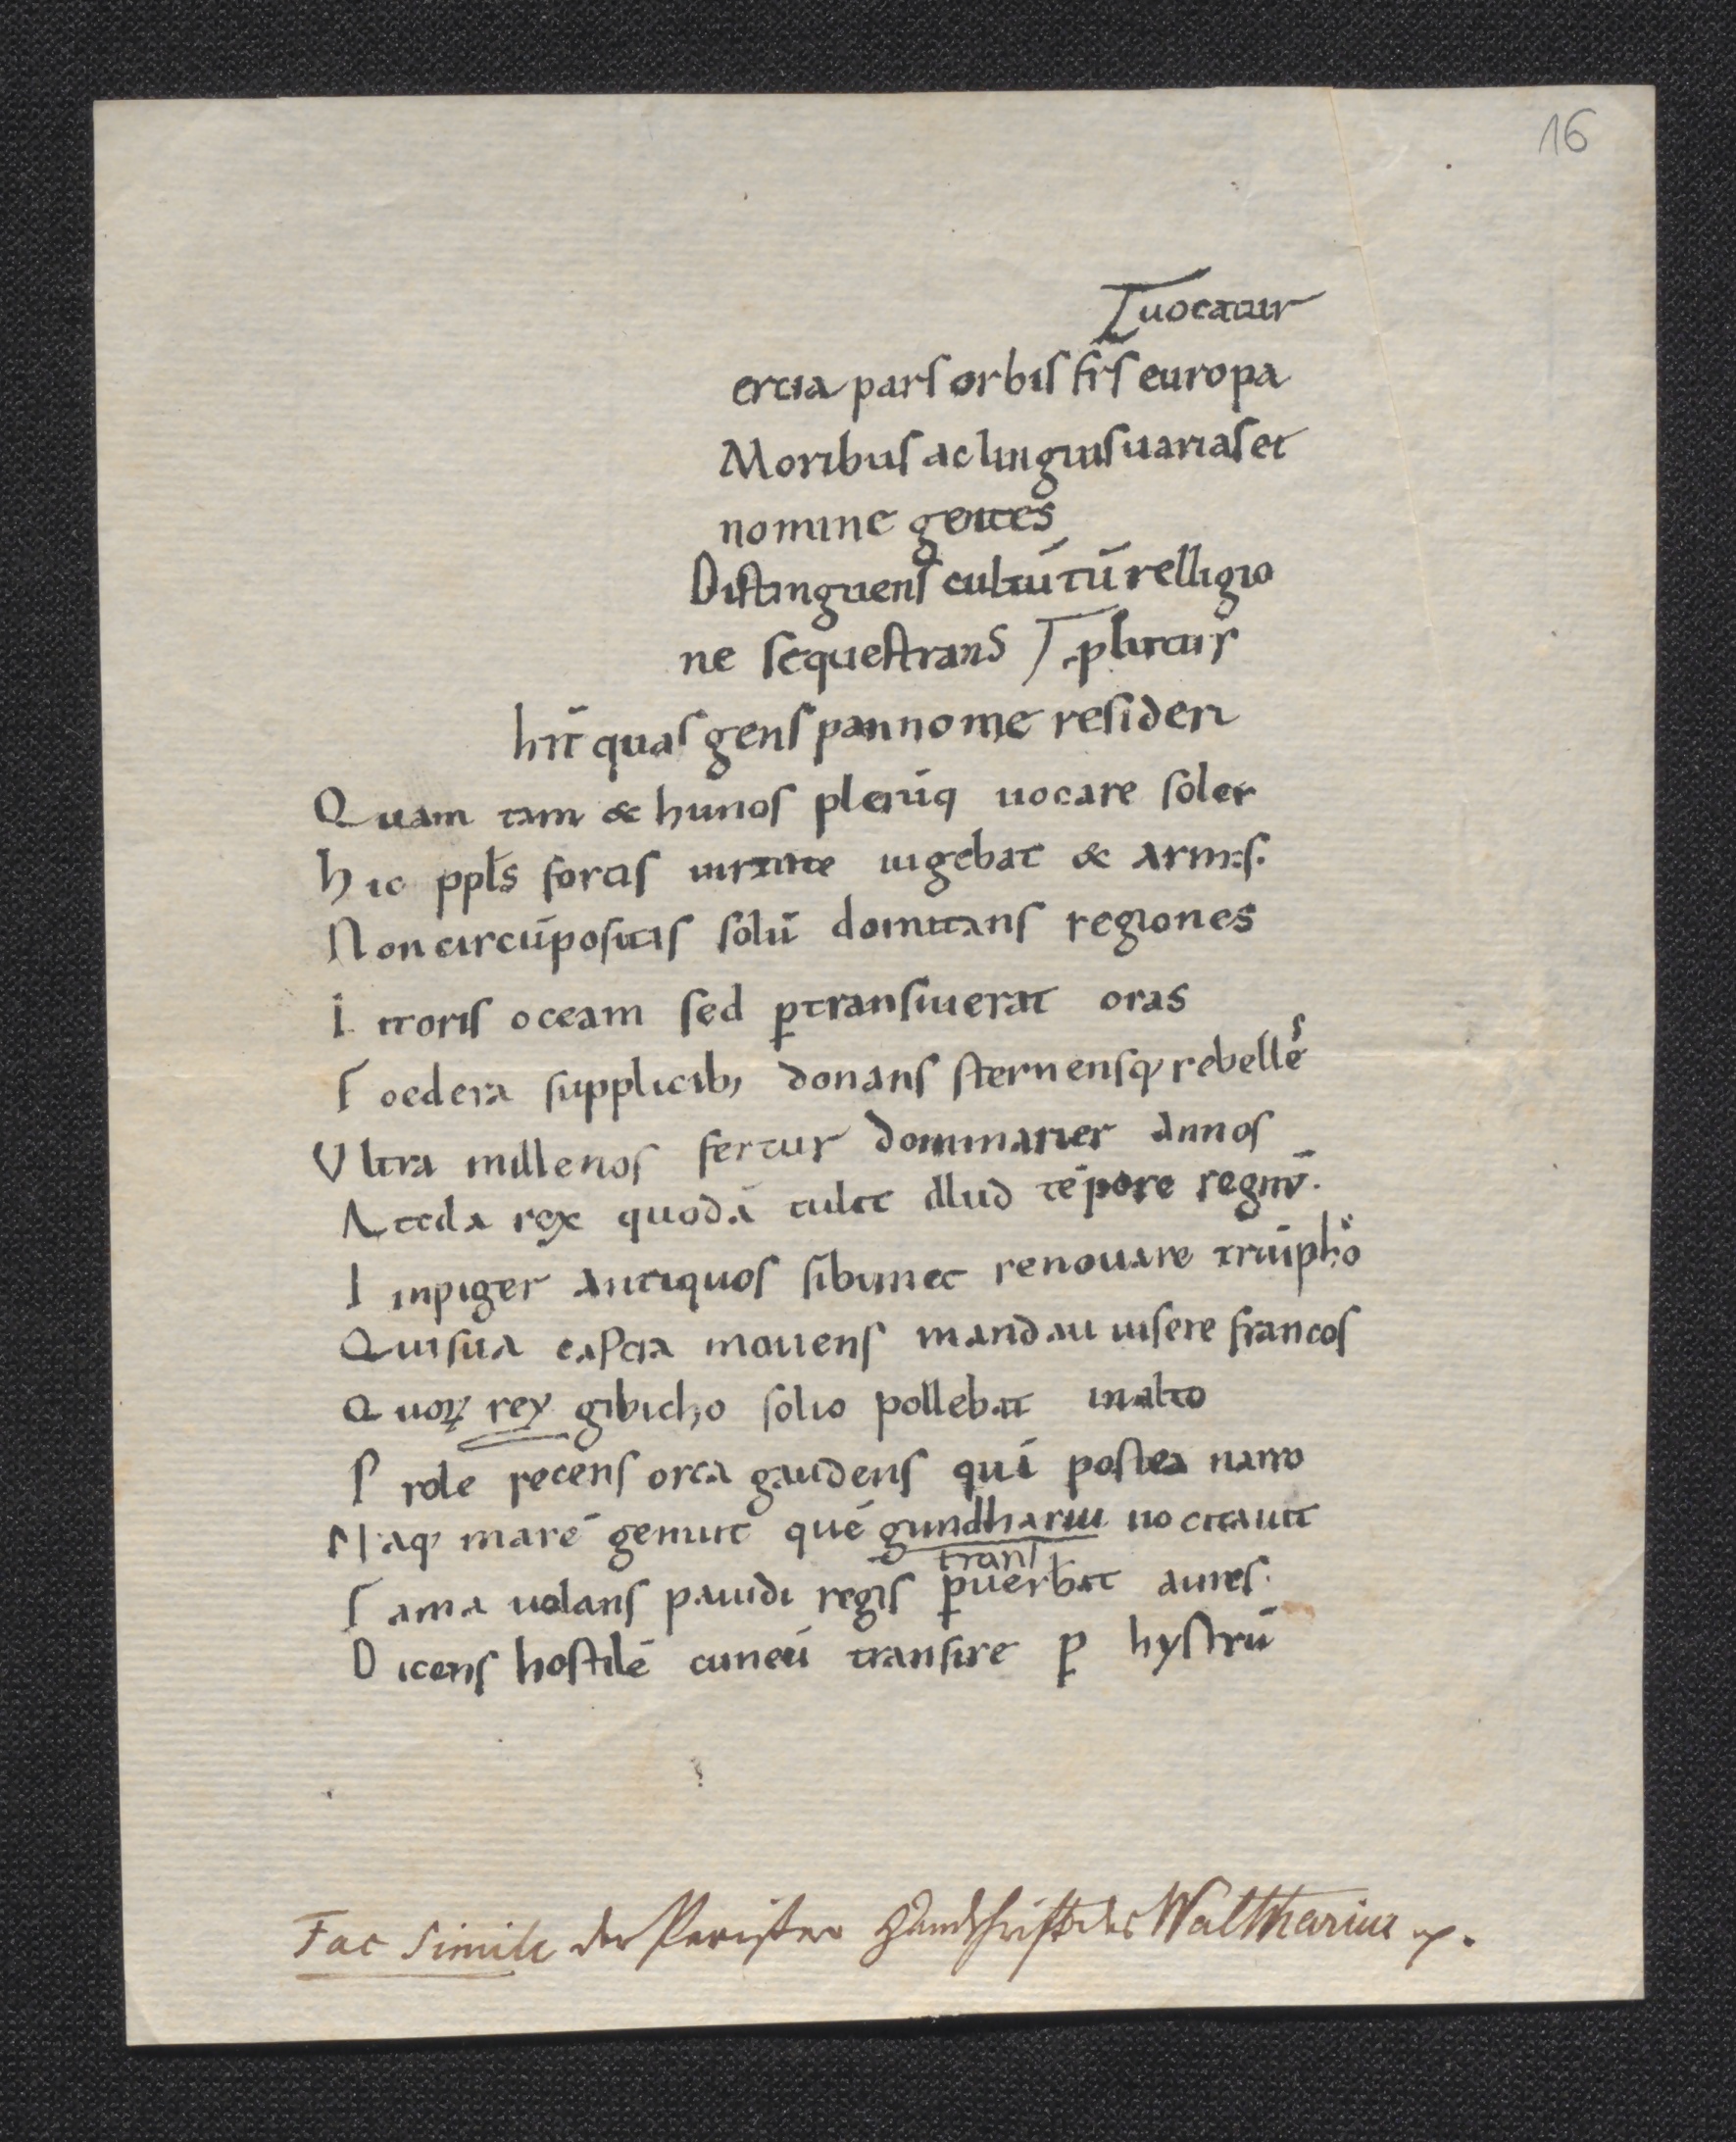 16
uocatur
ercia pars orbis frs̄ europa
Moribus ac linguis uarias et
nomine gentes
Distinguens cultū tū relligio
ne sequestrans plurcur
hit̄ quas gens pannonię resideri
Quam tam & hunos plerūq uocare soler
Hic ppls̄ fortis uirtute uigebat & armis.
Non circūpositas solū domitans regiones
Litoris oceani sed ꝑtransiuerat oras
Foedera supplicib; donans sternensq; rebelles
Vltra millenos fertur dominarier annos
Attila rex quodā tulit illud tēpore regnū.
Inpiger antiquos sibimet renouare triūphos
Qui sua castra mouens mandaui uisere francos
Quoꝝ rex gibicho solio pollebat in alto
Prole recens orta gaudens quā postea narro
Naq; marē genuit quē gundharıu uocitauit
trans
Fama uolans pauidi regis ꝑuerbat aures.
Dicens hostilē cuneū transire ꝑ hystrū
Fac simile der Pariser Handschrift des Waltharius